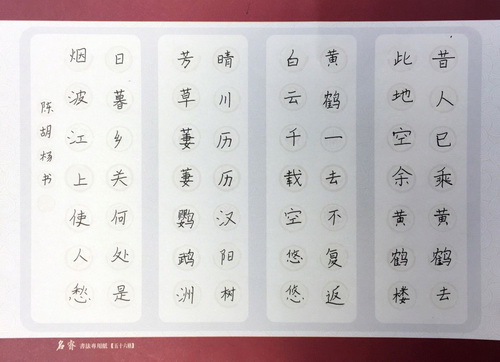 昔人已乘黄鹤去
此地空余黄鹤楼
黄鹤一去不复返
白云千载空悠悠
晴川历历汉阳树
芳草萋萋鹦鹉洲
日暮乡关何处是
烟波江上使人愁
陈胡杨书
名睿 書法專用紙【五十六格】